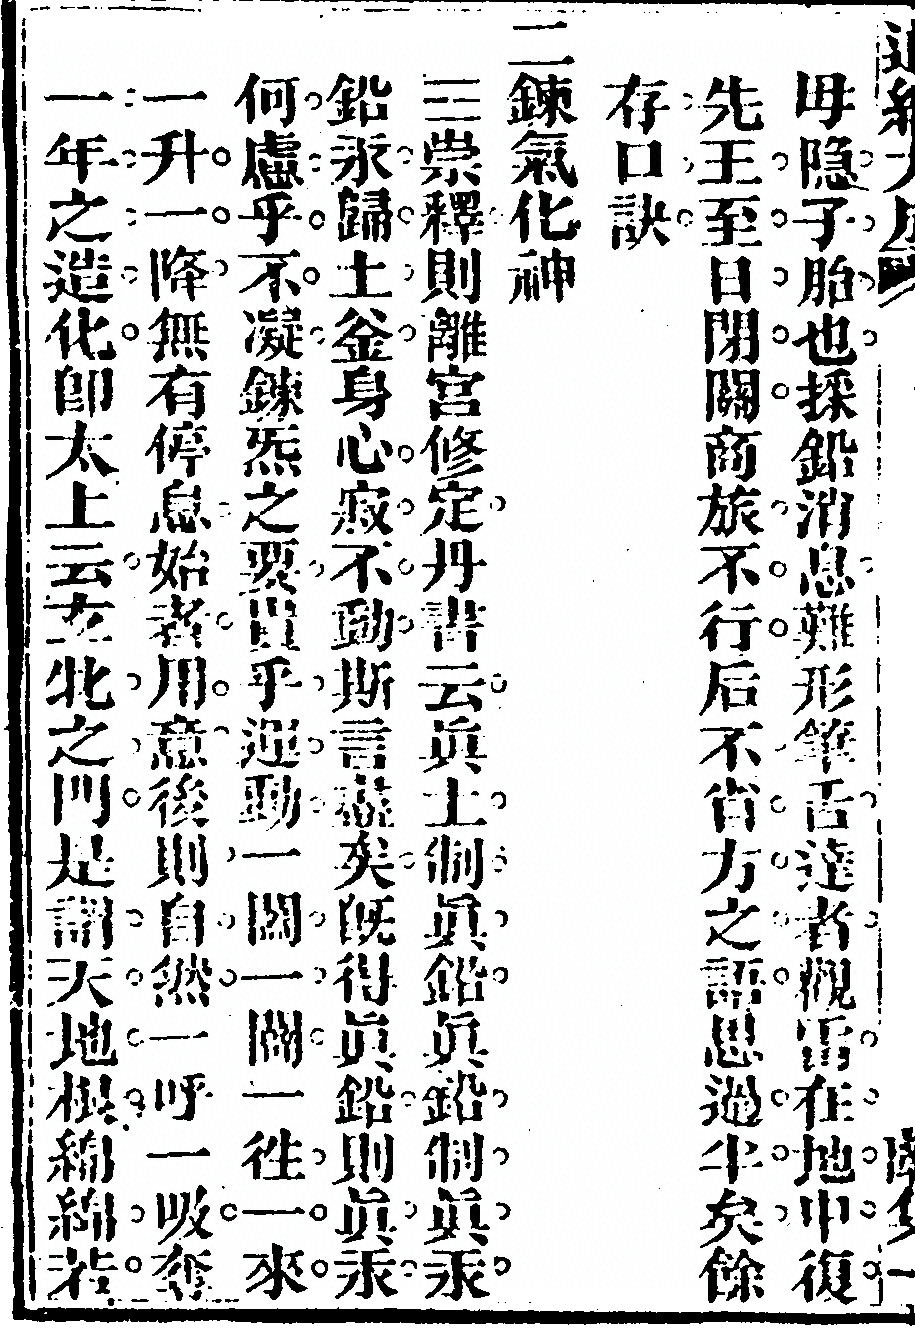 毋隐子胎也採鉛消息難形筆舌達者觀雷在地中復
先王至日閉關商旅不行后不省方之語思過半矣餘
存口訣
二鍊氣化神
三崇釋則離宮修定丹書云眞土制眞鉛眞鉛制眞汞
鉛汞歸土釜身心寂不動斯言盡矣既得眞鉛則眞汞
何慮乎不凝鍊炁之要貴乎運動一闔一闢一徃一來
一升一降無有停息始者用意後則自然一呼一吸奪
一年之造化卽太上云玄牝之門是謂天地根綿綿若